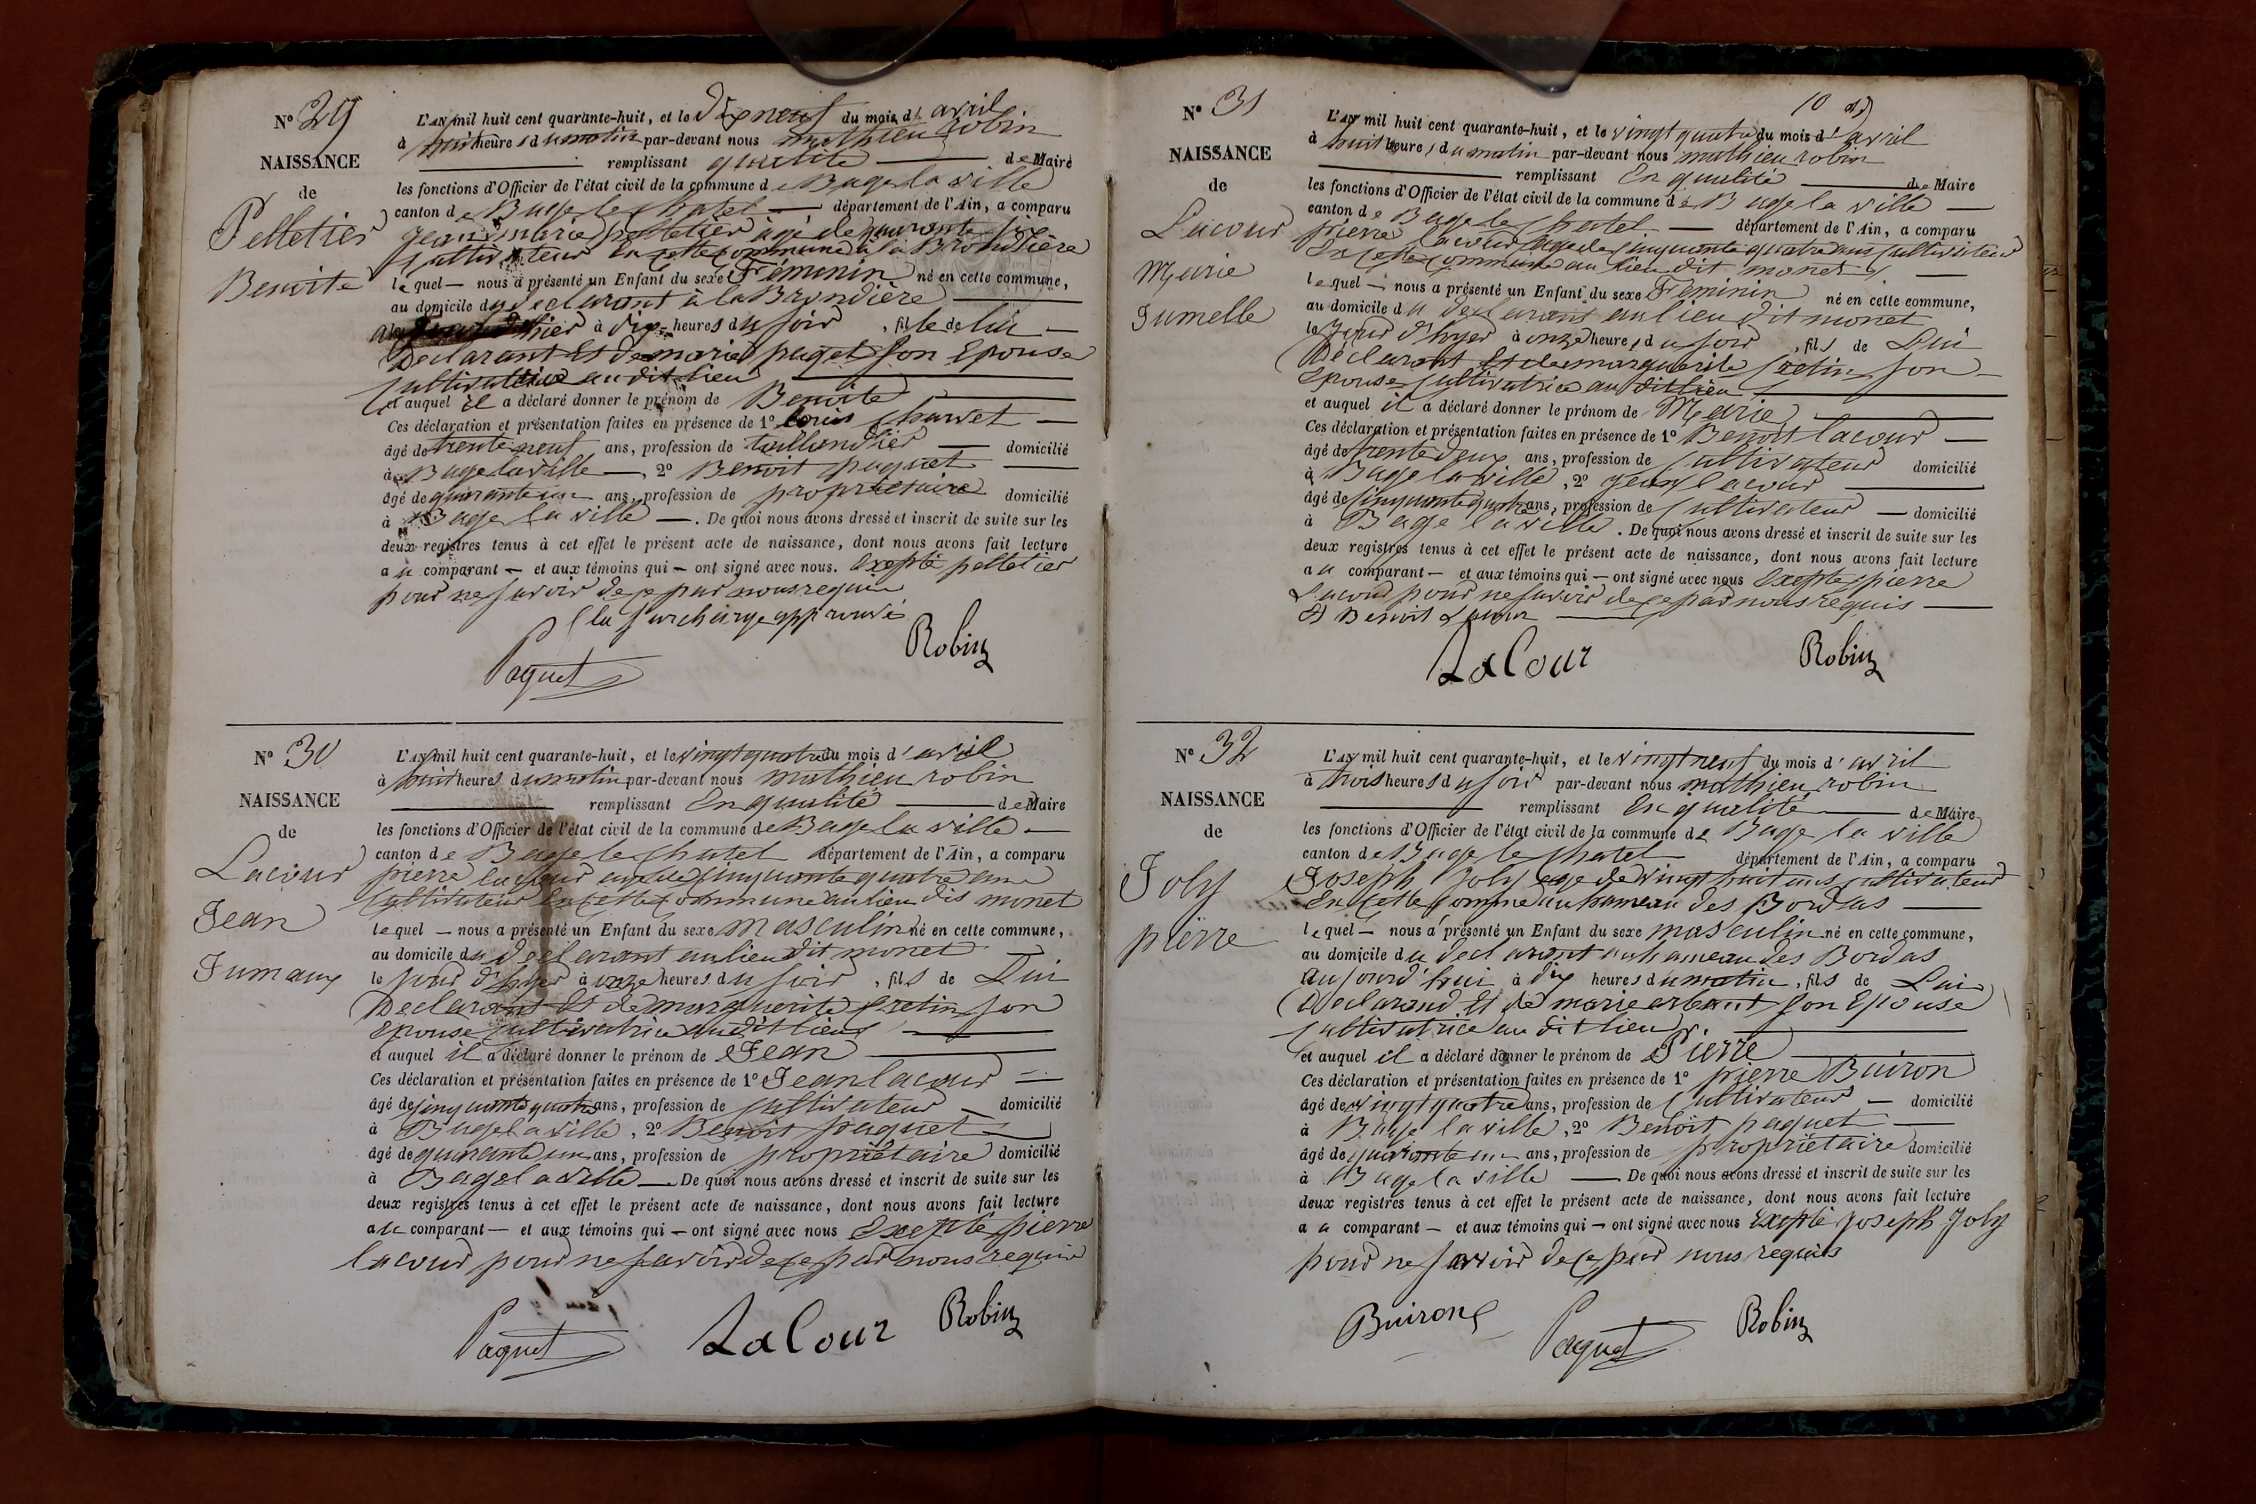 N° 29
NAISSANCE
de
Pelletier
Benoite
L'AN mil huit cent quarante-huit, et le Dix neuf du mois d' avril
à huit heures du matin par-devant nous mathieu robin
remplissant qualité de Maire
les fonctions d'Officier de l'état civil de la commune de Bage la ville
canton de Bage le Chatel département de l'Ain, a comparu
jean marie pelletier agé de quarante six
cultivateur en cette commune à la Brondière
lequel nous a présenté un Enfant du sexe Féminin né en cette commune,
au domicile du declarant à la Brondière
hier à dix heures du soir, fille de lui
Declarant Et de marie paget son Epouse
cultivatrice au dit lieu
et auquel il a déclaré donner le prénom de Benoite
Ces déclaration et présentation faites en présence de 1° Louis
âgé de trente neuf ans, profession de taillandier domicilié
à Bage la ville, 2° Benoit paquet
âgé de quarante un ans, profession de propriétaire domicilié
à Bage la ville. De quoi nous avons dressé et inscrit de suite sur les
deux registres tenus à cet effet le présent acte de naissance, dont nous avons fait lecture
au comparant et aux témoins qui ont signé avec nous. Excepté pelletier
pour ne savoir de ce par nous requis
la surcharge approuvé
Paquet Robin
N° 30
NAISSANCE
de
Lacour
Jean
Jumaux
L'AN mil huit cent quarante-huit, et le vingt quatre du mois d'avril
à huit heures du matin par-devant nous mathieu robin
remplissant En qualité de Maire
les fonctions d'Officier de l'état civil de la commune de Bage la ville
canton de Bage le Chatel département de l'Ain, a comparu
pierre lacour agé de cinquante quatre ans
cultivateur en cette commune au lieu dis monet
lequel nous a présenté un Enfant du sexe masculin né en cette commune,
au domicile du declarant au lieu dit monet
le jour d'hyer à onze heures du soir, fils de Lui
Declarant Et de marguerite cretin son
Epouse cultivatrice au dit lieu
et auquel il a déclaré donner le prénom de Jean
Ces déclaration et présentation faites en présence de 1° Jean lacour
âgé de cinquante quatre ans, profession de cultivateur domicilié
à Bage la ville, 2° Benoit paquet
âgé de quarante un ans, profession de propriétaire domicilié
à Bage la ville De quoi nous avons dressé et inscrit de suite sur les
deux registres tenus à cet effet le présent acte de naissance, dont nous avons fait lecture
au comparant et aux témoins qui ont signé avec nous Excepté pierre
lacour pour ne savoir de ce par nous requis
Paquet LaCour Robin
10
N° 31
NAISSANCE
de
Lacour
Marie
Jumelle
L'AN mil huit cent quarante-huit, et le vingt quatre du mois d'avril
à huit heures du matin par-devant nous mathieu robin
remplissant En qualité de Maire
les fonctions d'Officier de l'état civil de la commune de Bage la ville
canton de Bage le Chatel département de l'Ain, a comparu
pierre lacour age de cinquante quatre ans cultivateur
En cette commune au lieu dit monet
lequel nous a présenté un Enfant du sexe Feminin né en cette commune,
au domicile du declarant au lieu dit monet
le jour d'hyer à onze heures du soir, fils de Lui
Declarant Et de marguerite cretin son
Epouse cultivatrice au dit lieu
et auquel il a déclaré donner le prénom de Marie
Ces déclaration et présentation faites en présence de 1° Benoit lacour
âgé de trente deux ans, profession de cultivateur domicilié
à Bage la ville, 2° jean lacour
âgé de cinquante quatre ans, profession de cultivateur domicilié
à Bage la ville. De quoi nous avons dressé et inscrit de suite sur les
deux registres tenus à cet effet le présent acte de naissance, dont nous avons fait lecture
au comparant et aux témoins qui ont signé avec nous Excepté pierre
Lacour pour ne savoir de ce par nous requis
Et Benoit Lacour
LaCour Robin
N° 32
NAISSANCE
de
Joly
pierre
L'AN mil huit cent quarante-huit, et le vingt neuf du mois d'avril
à trois heures du soir par-devant nous mathieu robin
remplissant En qualité de Maire
les fonctions d'Officier de l'état civil de la commune de Bage la ville
canton de Bage le Chatel département de l'Ain, a comparu
Joseph Joly age de vingt huit ans cultivateur
En cette comme au hameau des Bordas
lequel nous a présenté un Enfant du sexe masculin né en cette commune,
au domicile du declarant au hameau des Bordas
aujourd'hui à dix heures du matin, fils de Lui
Declarand Et de marie son Epouse
cultivatrice au dit lieu
et auquel il a déclaré donner le prénom de Pierre
Ces déclaration et présentation faites en présence de 1° pierre Buiron
âgé de vingt quatre ans, profession de Cultivateur domicilié
à Bage la ville, 2° Benoit paquet
âgé de quarante un ans, profession de propriétaire domicilié
à Bage la ville De quoi nous avons dressé et inscrit de suite sur les
deux registres tenus à cet effet le présent acte de naissance, dont nous avons fait lecture
au comparant et aux témoins qui ont signé avec nous Excepté joseph Joly
pour ne savoir de ce par nous requis
Buiron Paquet Robin